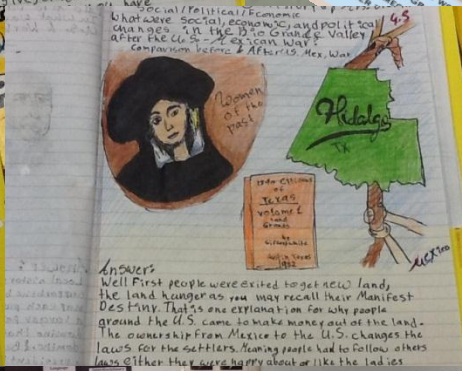 have
Social/Political/Economic
What were social, economic, and political
changes in the Rio Grande Valley
after the U.S. - Mexican War?
Comparison before & After U.S. Mex. War
U.S
Women
of the
Past
Hidalgo
TX
of
Texas
Volume 1
Land
Grants
by
Mexico
Answer:
Well First people were exited to get new land,
the land hunger as you may recall their Manifest
Destiny. That is one explanation for why people
ground the U.S. came to make money out of the land.
The ownership from Mexico to the U.S. changes the
laws for the settlers. Meaning people had to follow others
laws either they were happy about or like the ladies